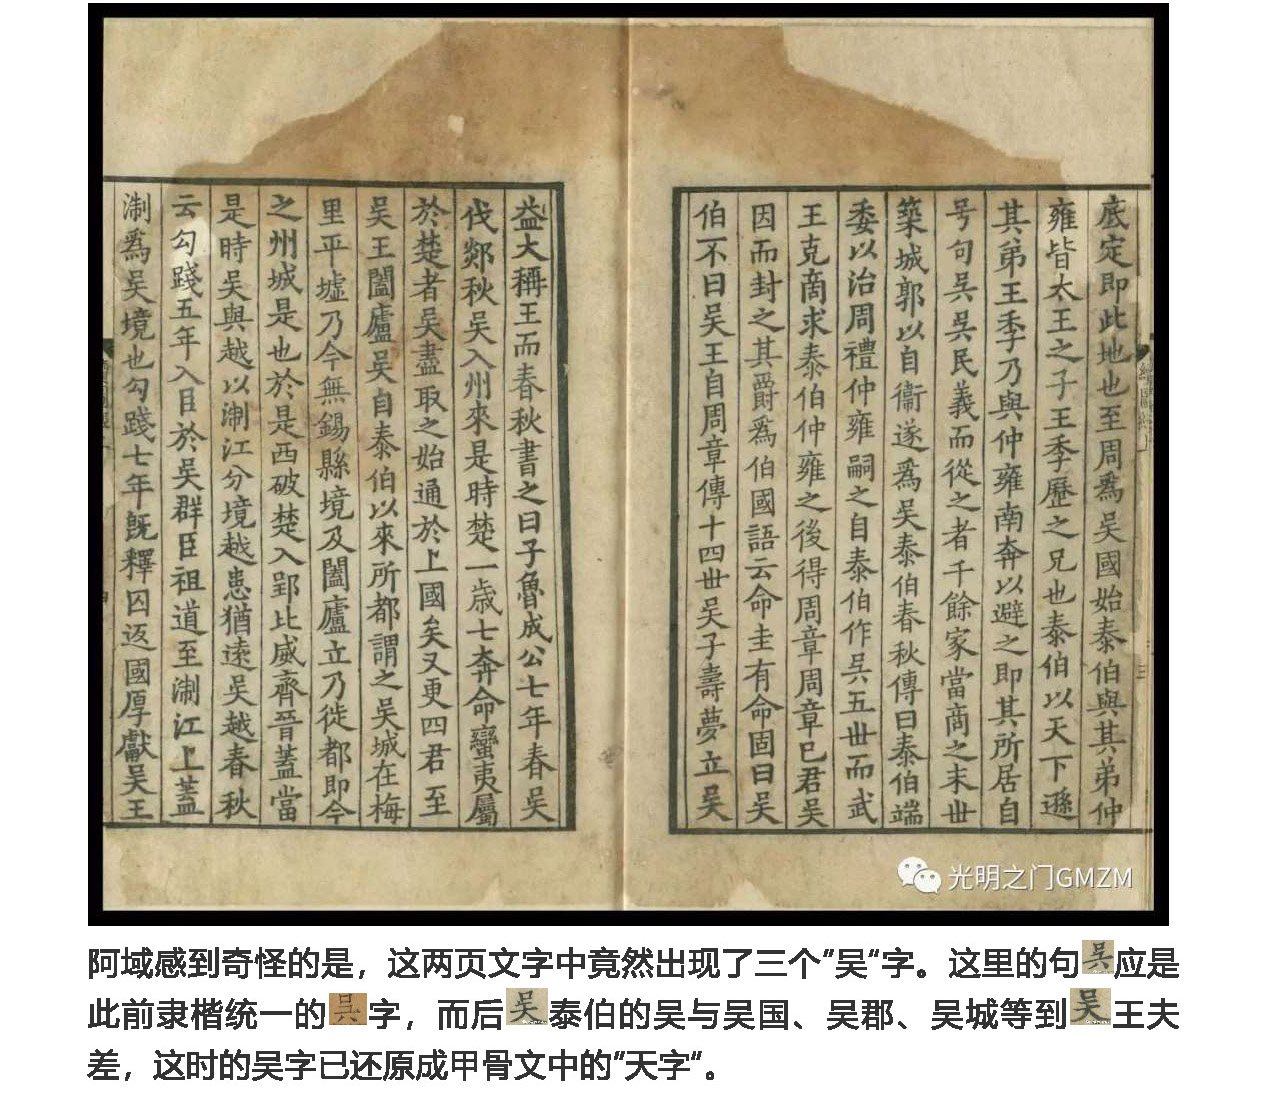 底定即此地也至周爲吴國始泰伯與其弟仲
雍皆太王之子王季歷之兄也泰伯以天下遜
其弟王季乃與仲雍南奔以避之即其所居自
号句吳吳民義而從之者千餘家當商之末世
築城郭以自衞遂爲吴泰伯春秋傳曰泰伯端
委以治周禮仲雍嗣之自泰伯作吳五世而武
王克商求泰伯仲雍之後得周章周章已君吴
因而封之其爵爲伯國語云命圭有命固曰吴
伯不曰吴王自周章傳十四世吴子壽夢立吴
益大稱王而春秋書之曰子魯成公七年春吴
伐郯秋吴入州來是時楚一歲七奔命蠻夷屬
於楚者吴盡取之始通於上國矣又更四君至
吴王闔廬吴自泰伯以來所都謂之吴城在梅
里平墟乃今無錫縣境及闔廬立乃徙都即今
之州城是也於是西破楚入郢北威齊晉蓋當
是時吴與越以淛江分境越患猶遠吴越春秋
云勾踐五年入臣於吴群臣祖道至淛江上蓋
淛爲吴境也勾踐七年旣釋囚返國厚獻吴王
光明之门GMZM
阿域感到奇怪的是，这两页文字中竟然出现了三个"吴"字。这里的句吳应是
此前隶楷统一的吳字，而后吴泰伯的吴与吴国、吴郡、吴城等到吴王夫
差，这时的吴字已还原成甲骨文中的"天字"。